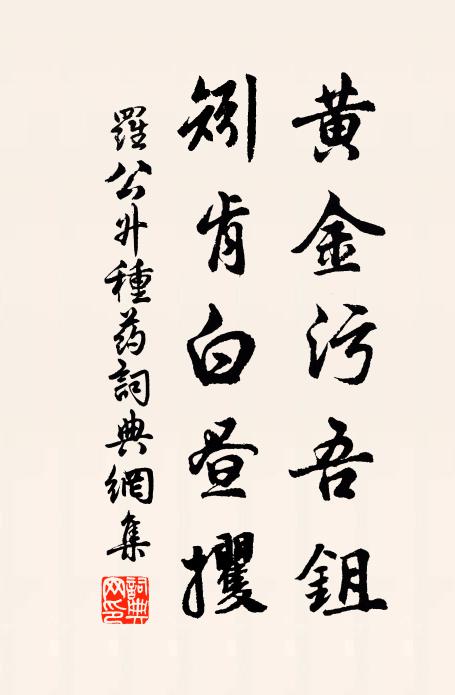 黃金污吾鉏
矧肯白晝攫
羅公外種药詞典網集
詞典网印